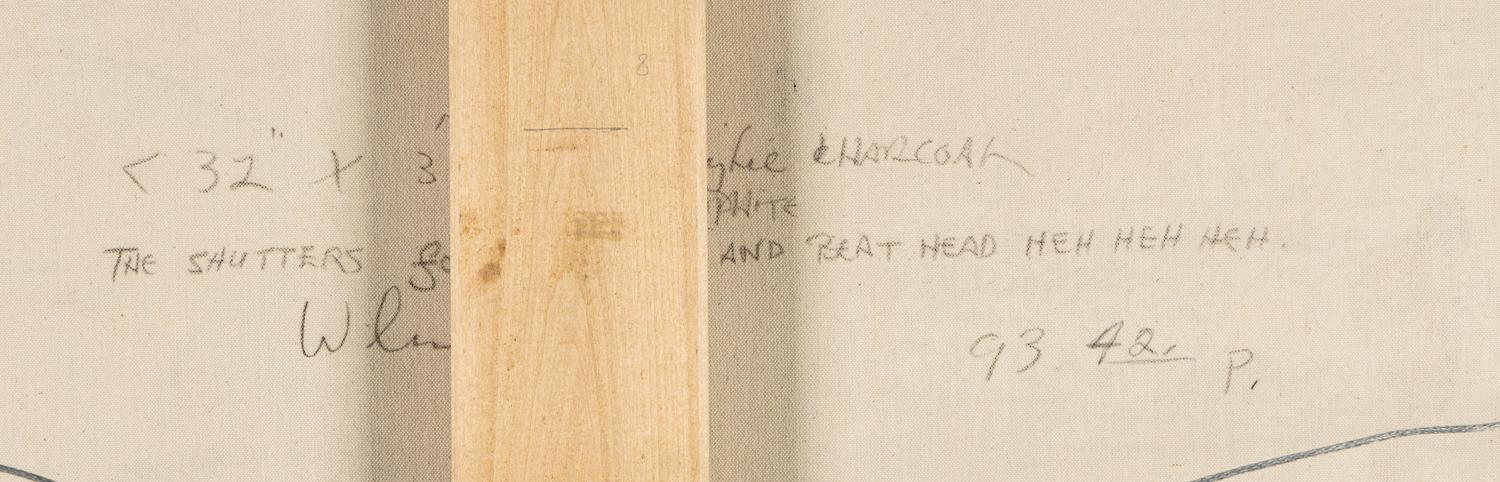 8
< 32" X 3
CHARCOAL
THE SHUTTERS AND BEAT HEAD HEH HEH HEH.
93. 42. P.